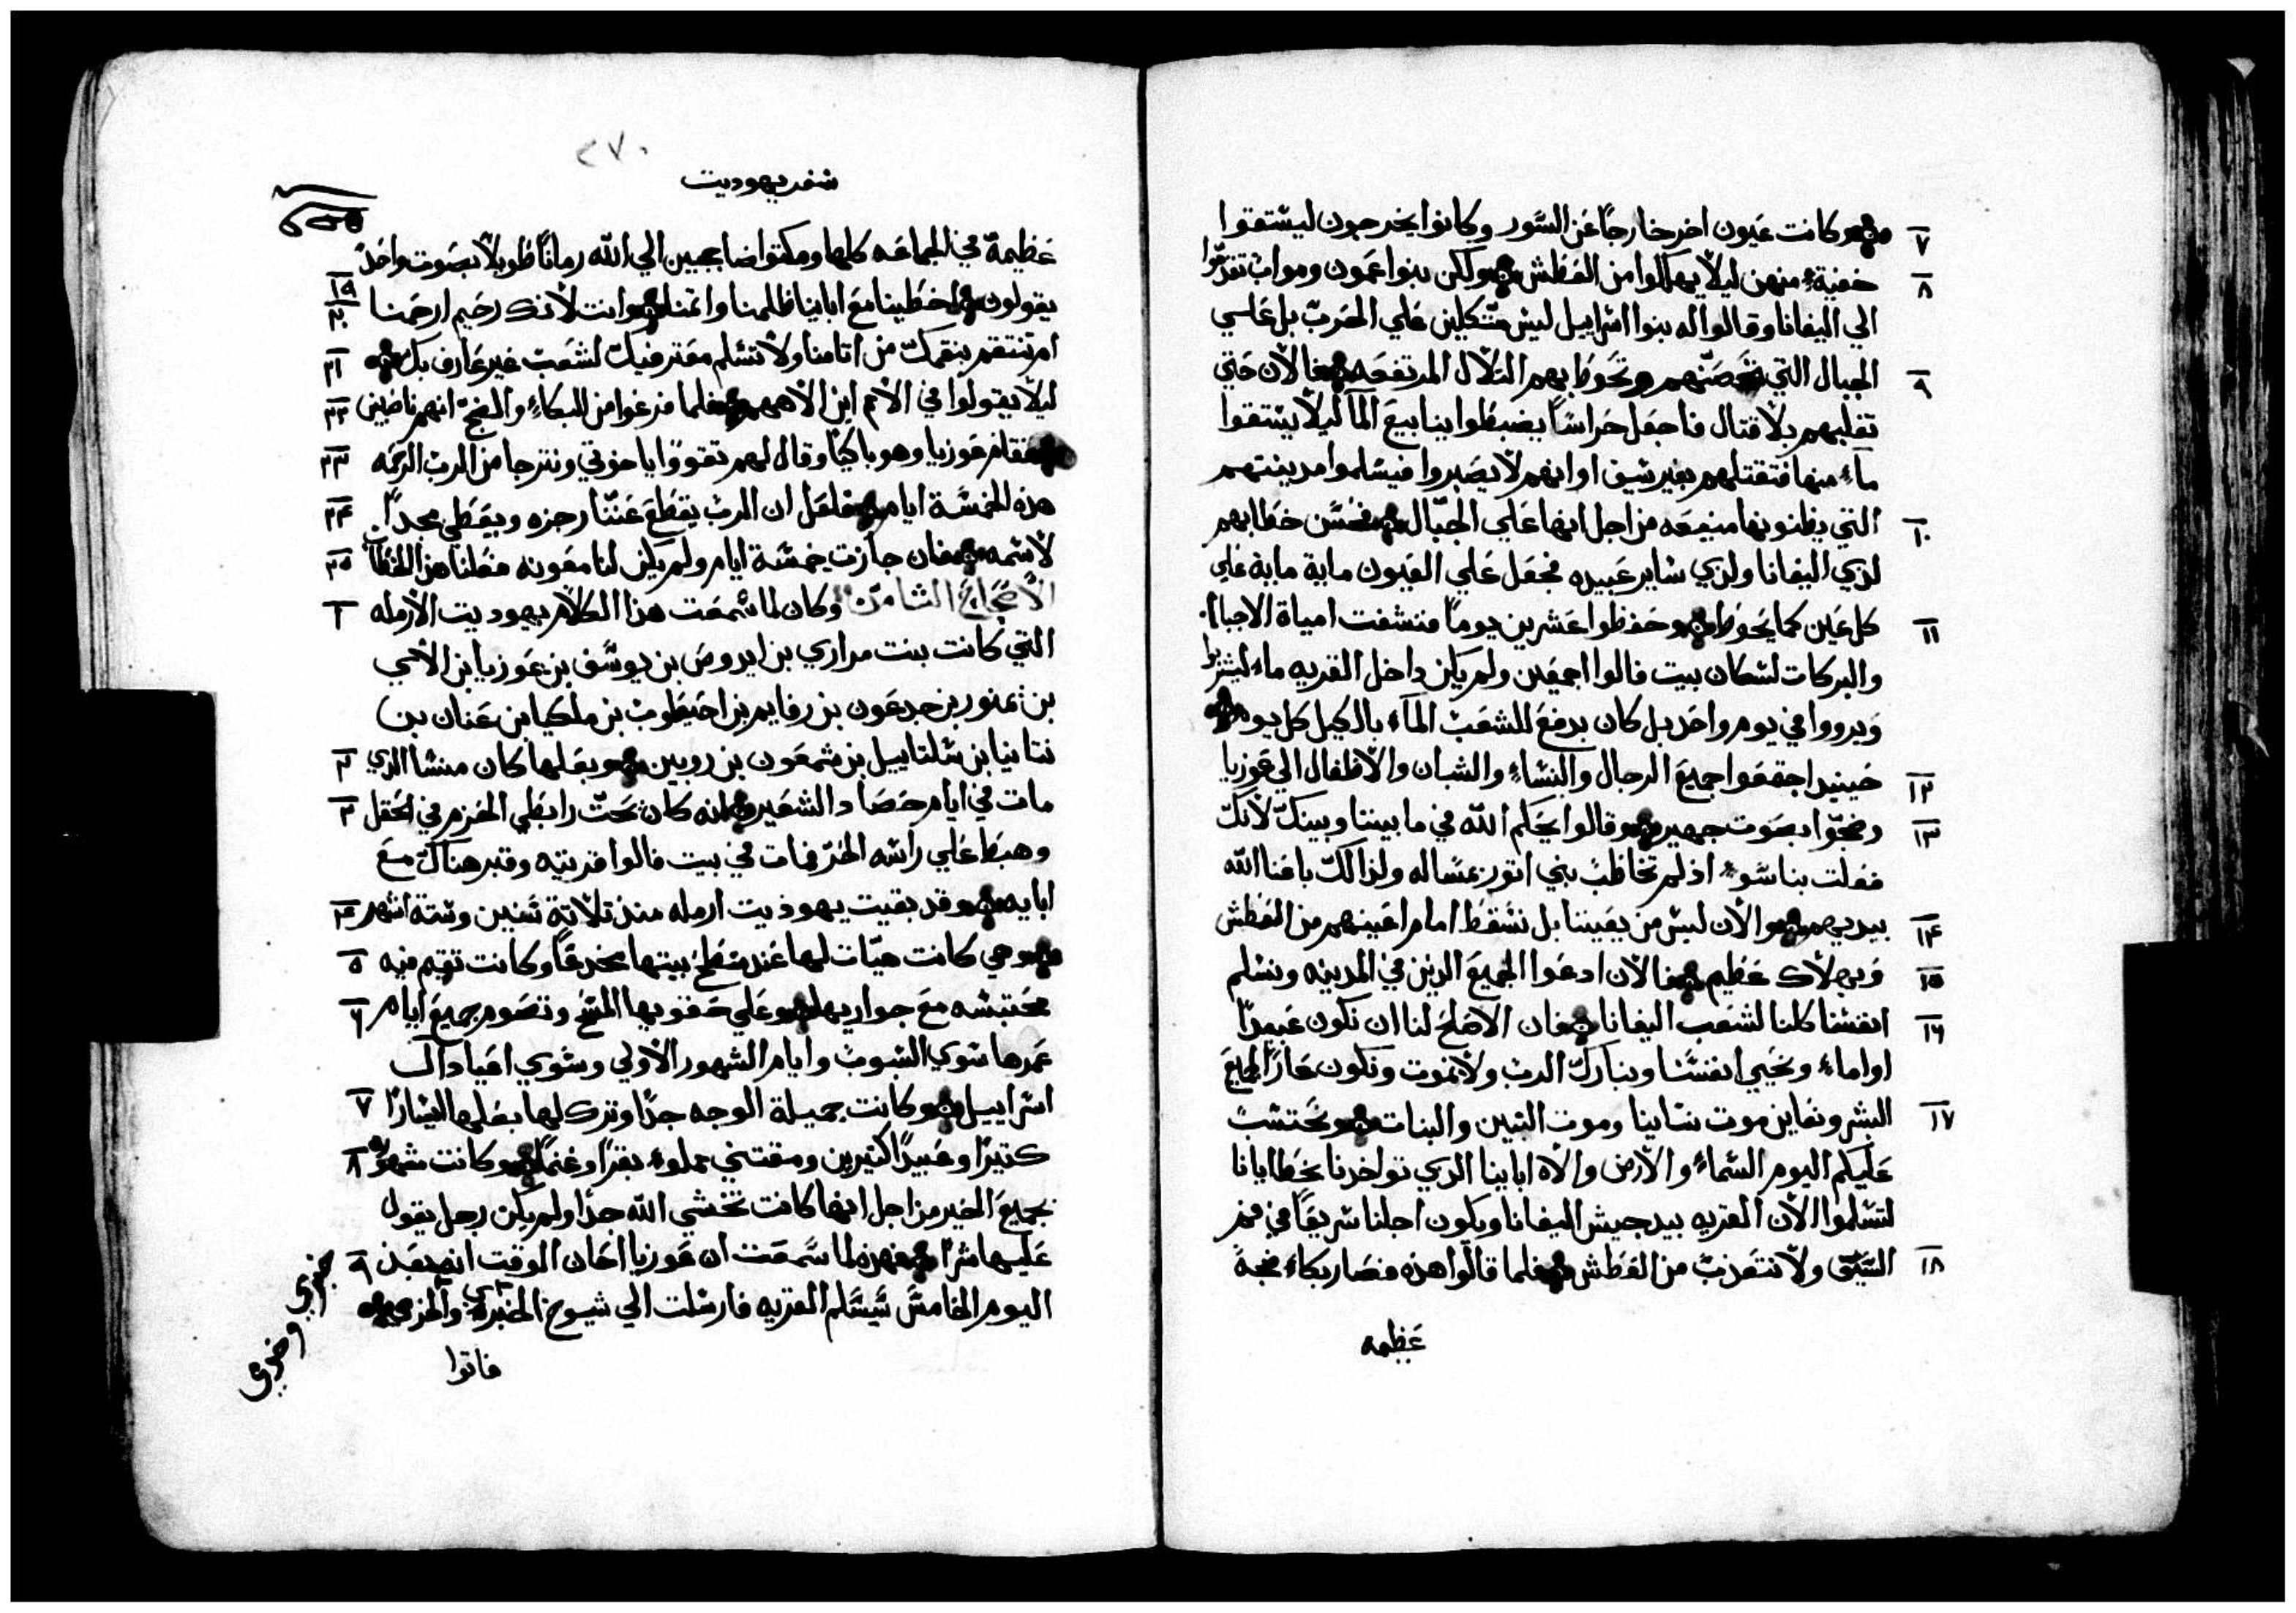 ٧ وكانت عيون اخر خارجًا عن السور وكانوا يخرجون ليستقوا
٨ خفيةً منهن ليلا يهلكوا من العطش ولكن بنوا عمون ومواب تقدموا
الي اليفانا وقالوا له بنوا اسراييل ليس متكلين علي الحرب بل علي
٩ الجبال التي تحصنهم وتحوط بهم التلال المرتفعه فالان حتي
تغلبهم بلا قتال فاجعل حراسًا يضبطوا ينابيع المآ ليلا يستقوا
مآء منها فتقتلهم بغير سيف او انهم لا يصبروا فيسلموا مدينتهم
١٠ التي يظنوبها منيعه من اجل انها علي الجبال فحسن خطابهم
لدي اليفانا ولدي ساير عبيده فجعل علي العيون ماية ماية علي
١١ كل عين كما يحوط وحفظوا عشرين يومًا فنشفت امياة الاجباب
والبركات لسكان بيت فالوا اجمعين ولم يكن داخل القريه ماء ليشربوا
ويرووا في يوم واحد بل كان يدفع للشعب المآء بالكيل كل يوم
١٢ حينيد اجتمعوا جميع الرجال والنساء والشبان والاطفال الي عوزيا
١٣ وضجوا بصوت جهير وقالوا يحكم الله في ما بيننا وبينك لانك
فعلت بنا سوء اذ لم تخاطب بني اتور بمساله ولذالك باعنا الله
١٤ بيديهم والان ليس من يعيننا بل نسقط امام اعينهم من العطش
١٥ وبهلاك عظيم فالان ادعوا الجميع الذين في المدينه ونسلم
١٦ انفسنا كلنا لشعب اليفانا فان الاصلح لنا ان نكون عبيدًا
او اماء ونحيي انفسنا ونبارك الرب ولا نموت ونكون عارًا لجميع
١٧ البشر ونعاين موت نساينا وموت البنين والبنات ونحتسب
عليكم اليوم السماء والارض والاه ابابنا الذي تواخدنا بخطايانا
لتسلموا الان القريه بيد جيش اليفانا ويكون اجلنا سريعًا في فم
١٨ السيف ولا نتعذب من العطش فلما قالوا هذه فصار بكاء وضجة
عظيمه
٢٧٠
سفر يهوديت
عظيمة في الجماعه كلها ومكتوا ضاججين الي الله زمانًا طويلاً بصوت واحد
١٩ ٢٠ يقولون اخطينا مع ابابنا ظلمنا واتمنا وانت لانك رحيم ارحمنا
٢١ ام تنتقم بنقمك من اتامنا ولا تسلم معترفيك لشعب غير عارف بك
٢٢ ليلا يقولوا في الامم اين الاههم فلما فرغوا من البكاء والضج انهم ناصبين
٢٣ فقام عوزيا وهو باكيًا وقال لهم تقووا يا اخوتي ونترجا من الرب الرحمه
٢٤ هذه الخمسة ايام فلعل ان الرب يقطع عنّنا رجزه ويعطي مجدًا
٢٥ لاسمه فان جازت خمسة ايام ولم يكن لنا معونه فعلنا هذا الخطاب
١ الاصحاح الثامن وكان لما سمعت هذا الكلام يهوديت الارمله
التي كانت بنت مراري بن ايدوص بن يوسف بن عوزيا بن الاي
بن يمنور بن جدعون بن رفايم بن احيطوب بن ملكيا بن عنان بن
٢ نتانيا بن شلتاييل بن شمعون بن روبين وبعلها كان منسا الذي
٣ مات في ايام حصاد الشعير لانه كان تحت رابطي الحزم في الحقل
وهبط علي راسه الحر فمات في بيت فالوا قريته وقبر هناك مع
٤ ابايه وقد بقيت يهوديت ارمله منذ تلاتة سنين وستة اشهر
٥ وهي كانت هيات لها عند سطح بيتها مخدعًا وكانت تقيم فيه
٦ محتبسه مع جواريها وعلي حقويها المسح وتصوم جميع ايام
عمرها سوي السبوت وايام الشهور الاولي وسوي اعياد ال
٧ اسراييل وكانت جميلة الوجه جدًا وترك لها بعلها اليسارًا
٨ كتيرًا وعبيدًا كتيرين ومقتني مملوء بقرًا وغنمًا وكانت شهيره
بجميع الخير من اجل انها كانت تخشي الله جدًا ولم يكن رجل يقول
٩ عليها شرًا فهذه لما سمعت ان عوزيا اعان الوقت انه بعد
اليوم الخامس سيسلم القريه فارسلت الي شيوخ الخبري والحزمي
خبري وخرمي
فاتوا